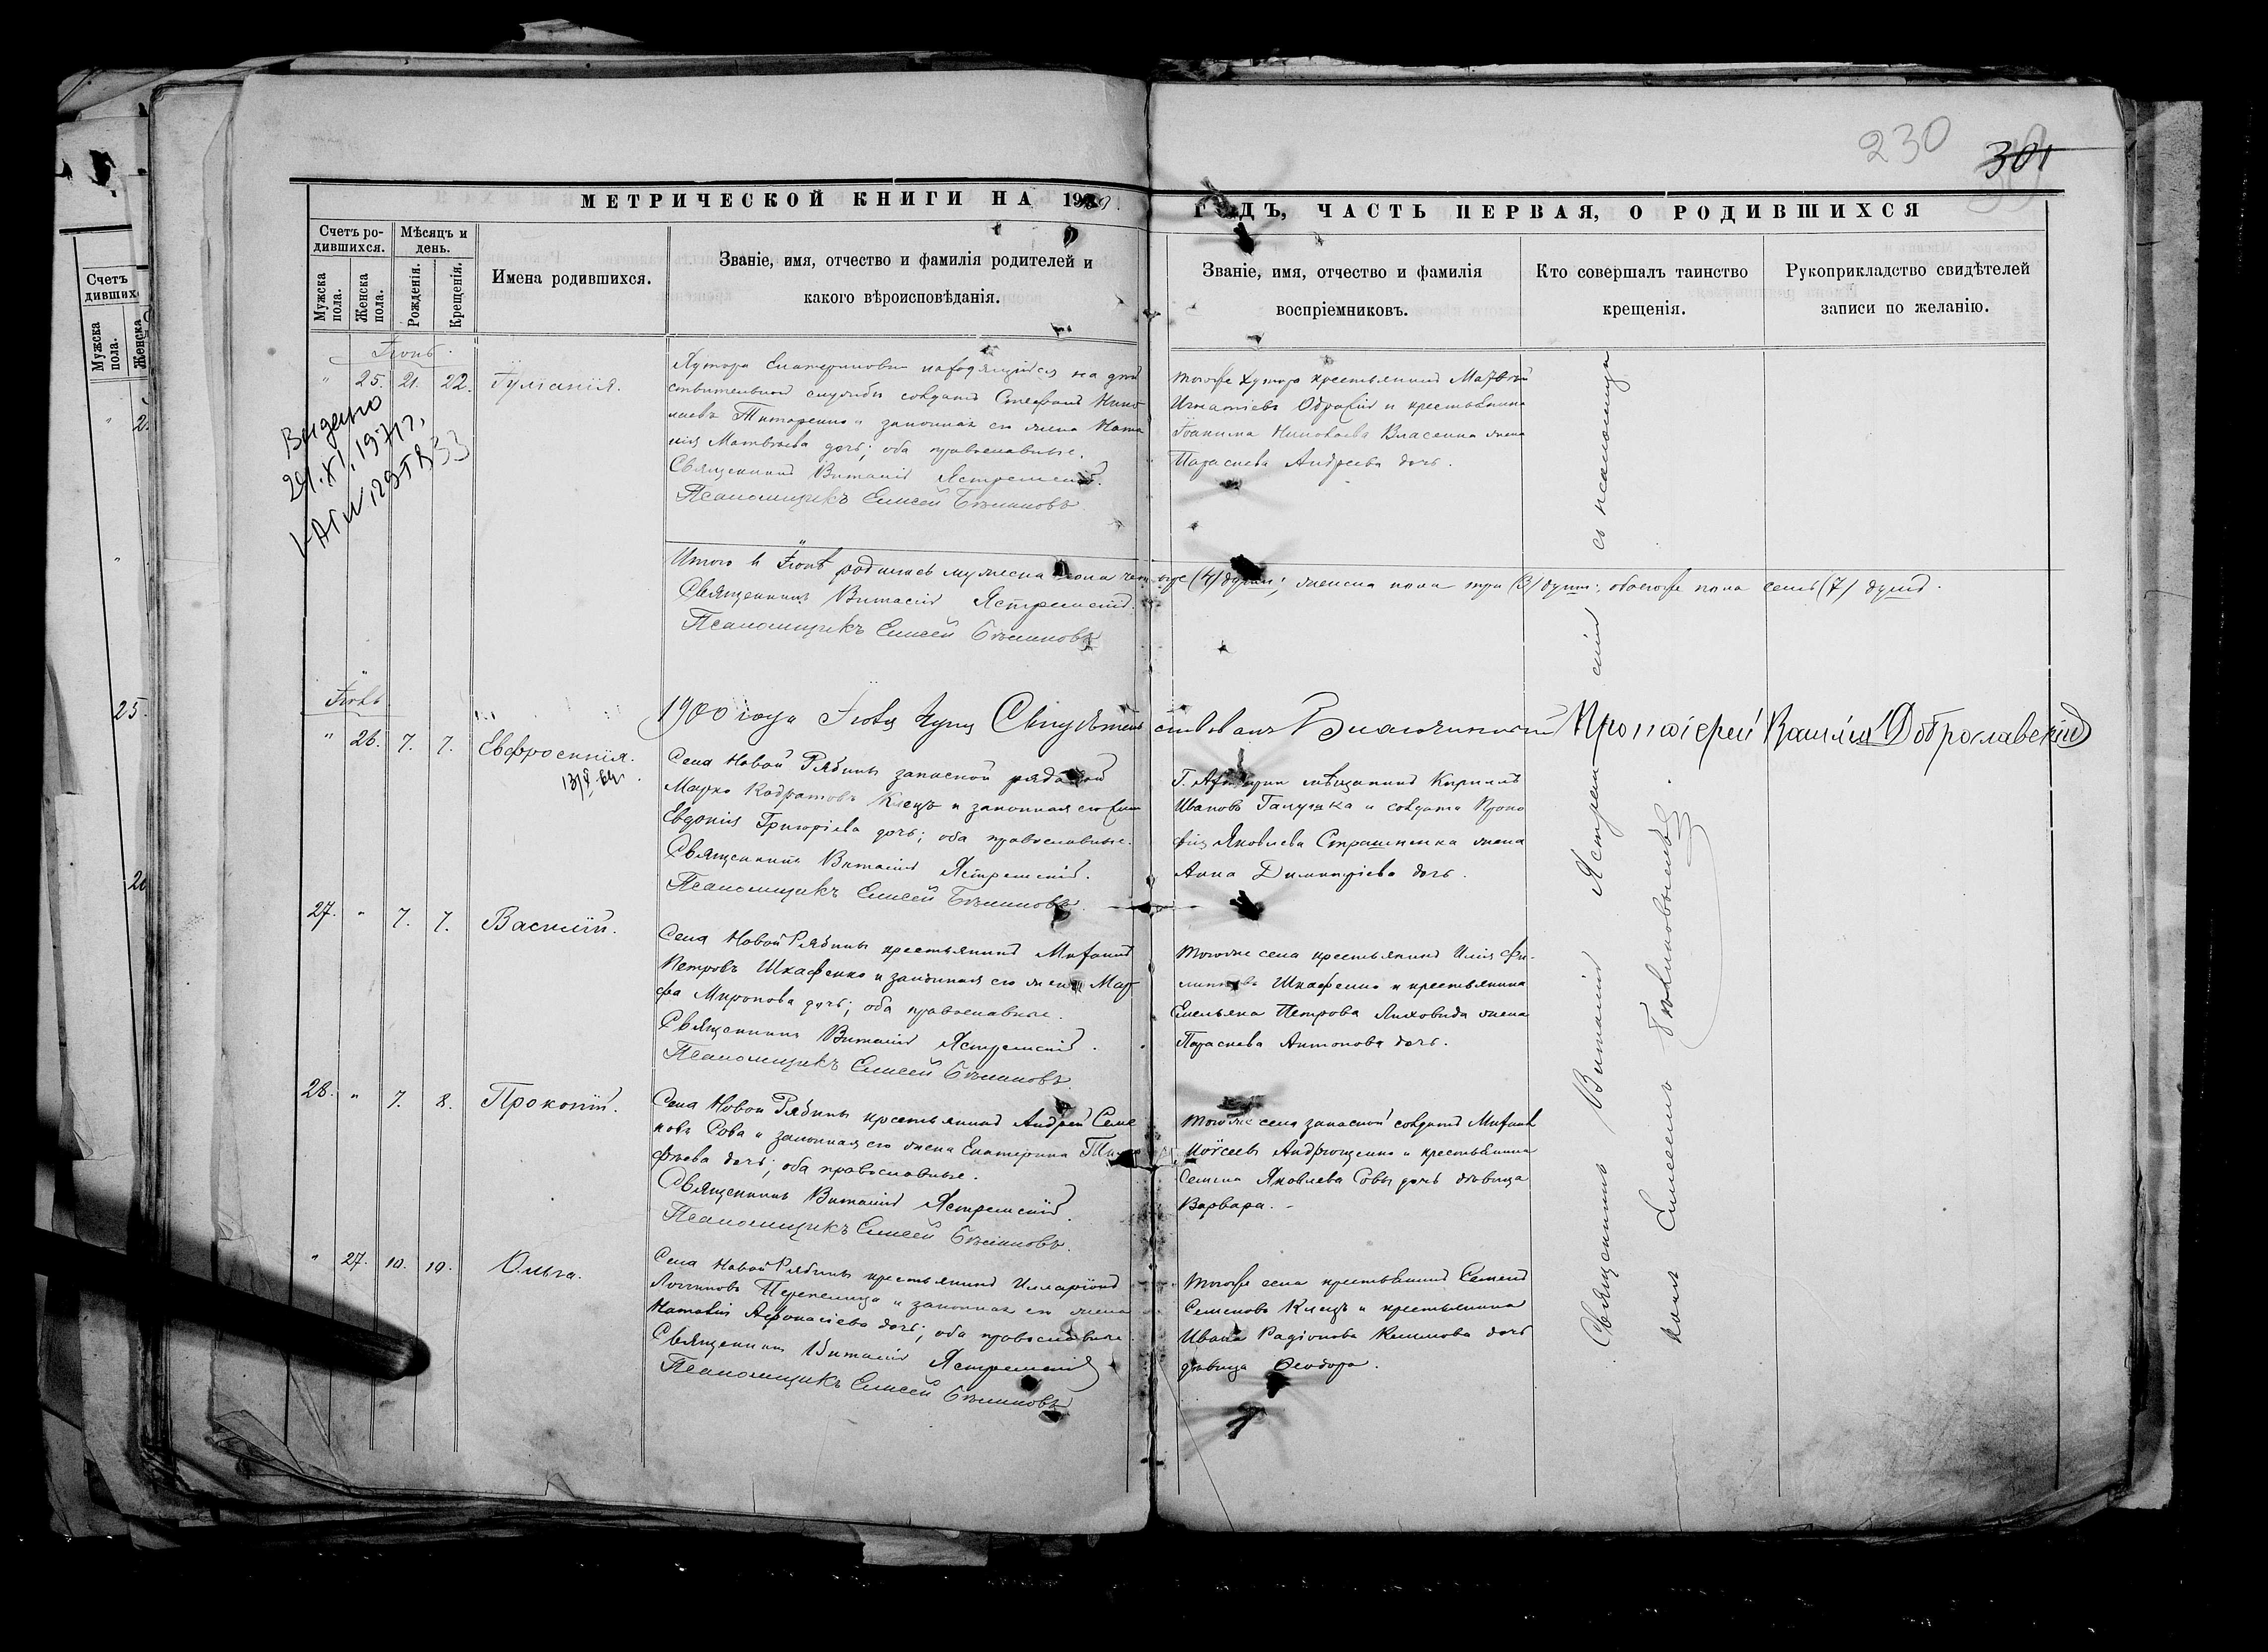 230
301
МЕТРИЧЕСКОЙ КНИГИ НА 1900
ГОДЪ, ЧАСТЬ ПЕРВАЯ, О РОДИВШИХСЯ
Счетъ ро-
дившихся.
Мужска
пола.
Женска
пола.
Мѣсяцъ и
день.
Рожденія.
Крещенія.
Имена родившихся.
Званіе, имя, отчество и фамилія родителей и
какого вѣроисповѣданія.
Званіе, имя, отчество и фамилія
воспріемниковъ.
Кто совершалъ таинство
крещенія.
Рукоприкладство свидѣтелей
записи по желанію.
Счетъ
дивших
Мужска
пола.
Женска
25.
Іюнь.
" 25. 21. 22. Іуліанія.
Хутора находящійся на дѣй
ствительной службѣ солдатъ Стефанъ Нико
лаевъ Титаренко и законная его жена Ната
лія Матвѣева дочь; оба православные.
Священникъ Виталій Ястремскій.
Псаломщикъ Елисей
тогоже хутора крестьянинъ Матвѣй
Игнатіевъ и крестьянина
Іоакима Николаева Власенка жена
Параскева Андреева дочь.
Выдано
29.XI.1971г.
Итого въ Іюнѣ родилось мужеска пола четыре (4) души; женска пола три (3) души; обоегоже пола семь (7) душъ.
Священникъ Виталій Ястремскій.
Псаломщикъ Елисей
Іюль
1900 года Іюля Свидѣтельствовалъ Благочинный Протоіерей Василій Доброславскій
" 26. 7. 7. Евфросинія.
Села Новой Рябины запасной рядовой
Марко Кодратовъ Клецъ и законная его жена
Евдокія Григоріева дочь; оба православные.
Священникъ Виталій Ястремскій.
Псаломщикъ Елисей
Г. мѣщанинъ Кириллъ
Ивановъ Галушка и солдата Проко
фія Яковлева жена
Анна Димитріева дочь.
27. " 7. 7. Василій.
Села Новой Рябины крестьянинъ Михаилъ
Петровъ Шкафенко и законная его жена Мар
фа Миронова дочь; оба православные.
Священникъ Виталій Ястремскій.
Псаломщикъ Елисей
тогоже села крестьянинъ Илія Фи-
липповъ Шкафенко и крестьянина
Емельяна Петрова Лиховида жена
Параскева Антонова дочь.
28. " 7. 8. Прокопій.
Села Новой Рябины крестьянинъ Андрей Семе
новъ Сова и законная его жена Екатерина Тимо
фѣева дочь; оба православные.
Священникъ Виталій Ястремскій.
Псаломщикъ Елисей
тогоже села запасной солдатъ Михаилъ
Моѵсеевъ Андрющенко и крестьянина
Семена Яковлева Совы дочь дѣвица
Варвара.
" 27. 10. 10. Ольга.
Села Новой Рябины крестьянинъ Илларіонъ
Логгиновъ Перепелица и законная его жена
Наталія Афанасіева дочь; оба православные.
Священникъ Виталій Ястремскій
Псаломщикъ Елисей
тогоже села крестьянинъ Семенъ
Семеновъ Клецъ и крестьянина
Ивана Радіонова дочь
дѣвица Ѳеодора.
Священникъ Виталій Ястремскій съ псаломщи
комъ Елисеемъ